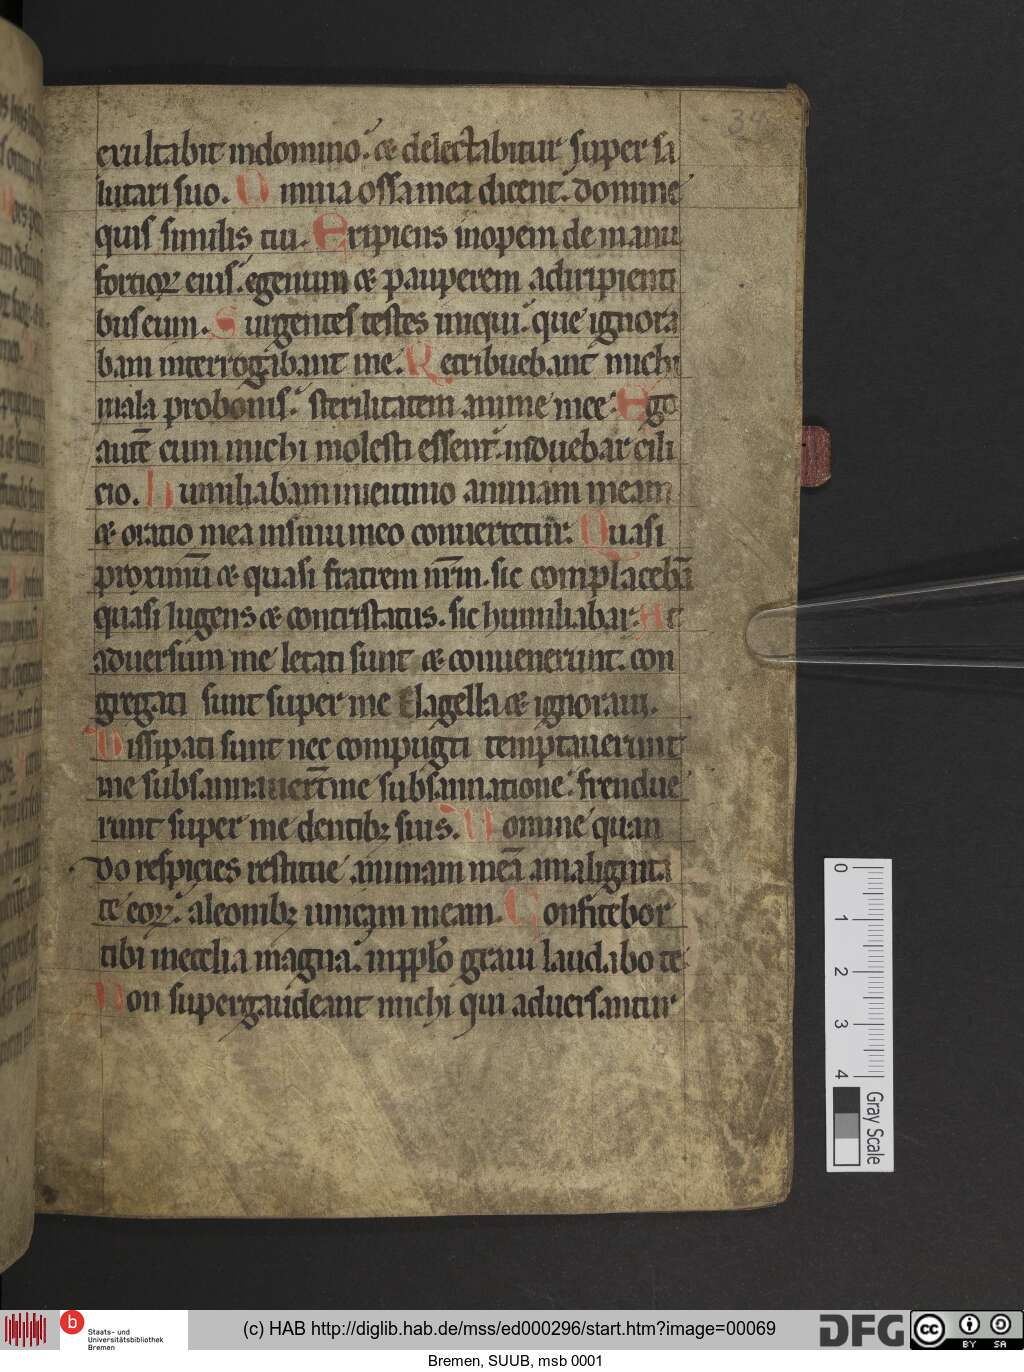 34
exultabit indomino. & delectabitur super sa
lutari suo. Omnia ossa mea dicent. domine
quis similis tui. Eripiens inopem de manu
fortioꝝ eius. egenum & pauperem adiripienti
bus eum. Surgentes testes iniqui. que ignora
bam interrogabant me. Retribuebant michi
mala probonis. sterilitatem anime mee. Ego
autē cum michi molesti essent. induebar cili
cio. Humiliabam inieiunio animam meam
& oratio mea insinu meo conuertetur. Quasi
proximū & quasi fratrem nr̄m. sic complacebā
quasi lugens & contristatus. sic humiliabar. Et
aduersum me letati sunt & conuenerunt. con
gregati sunt super me flagella & ignoraui.
Dissipati sunt nec compūgti temptauerunt
me subsannauer̄t me subsannatione. frendue
runt super me dentibꝫ suis. Domine quan
do respicies restitue animam meā amalignita
te eoꝝ. aleonibꝫ unicam meam. Confitebor
tibi inecclia magna. inpp̄lo graui laudabo te
Non supergaudeant michi qui aduersantur
0
1
2
3
4
Gray Scale
b
Staats- und
Universitätsbibliothek
Bremen
(c) HAB http://diglib.hab.de/mss/ed000296/start.htm?image=00069
DFG
cc
BY SA
Bremen, SUUB, msb 0001